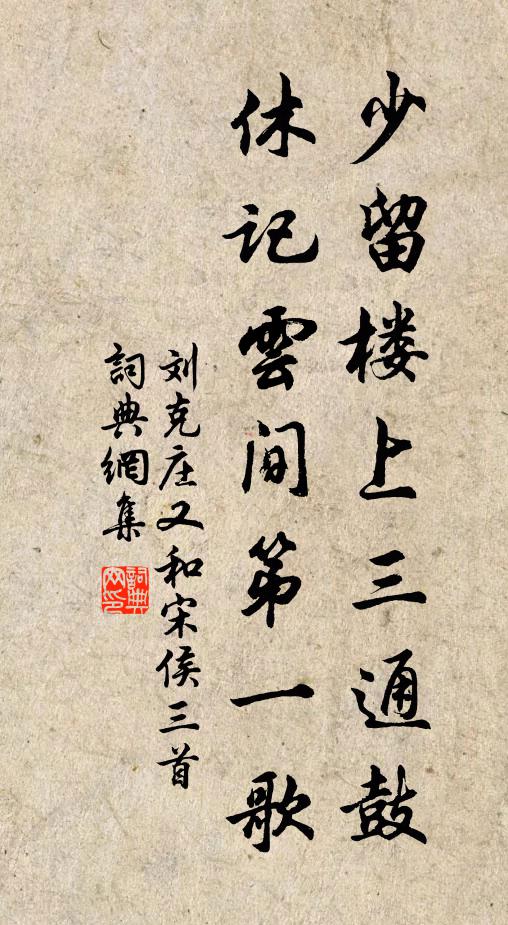 少留楼上三通鼓
休记雲间第一歌
刘克庄又和宋侯三首
詞典網集
詞典网印